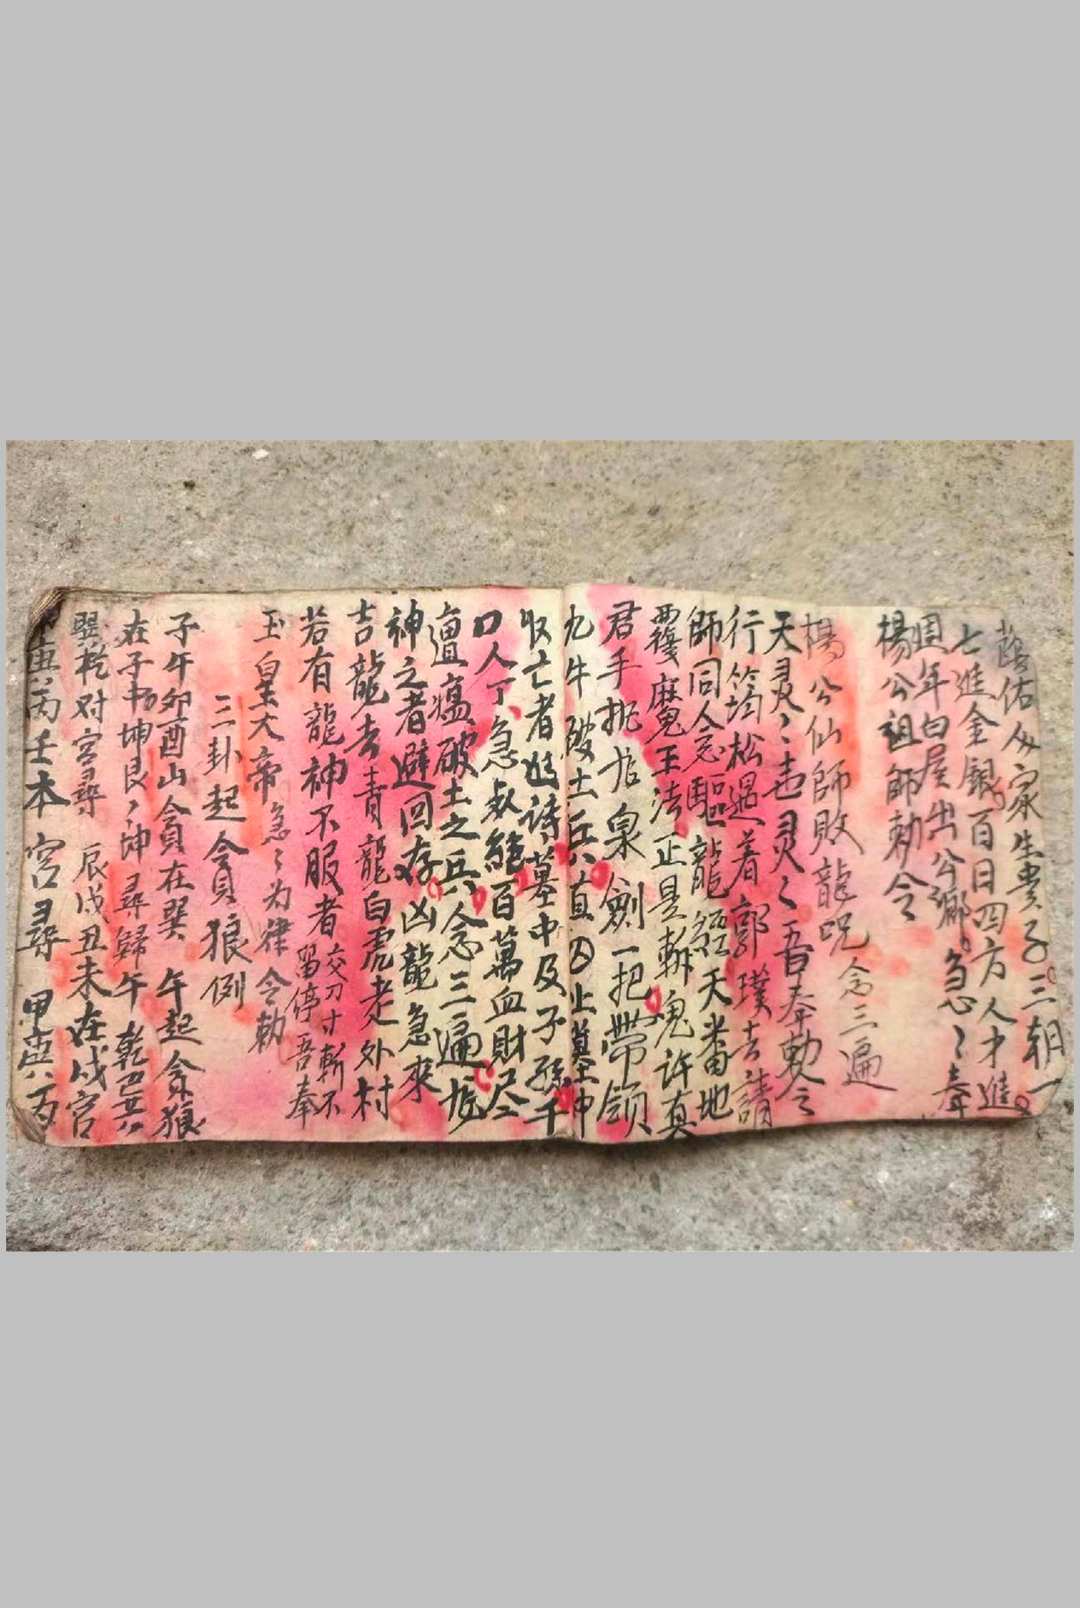 蔭佑众家生貴子三朝一
七進金銀百日四方人才進
週年白屋出公鄉急〻奉
楊公祖師勅令
楊公仙師敗龍咒念三遍
天灵〻地灵〻吾奉勅令
行筠松遇着郭璞去請
師同人念驅龍經天番地
覆魔王法正是斬鬼許真
君手挑龙泉劍一把帶領
九牛破土兵直凶止墓中
收亡者 墓中及子孫千
口人丁急 絕百萬血財尽
瘟破土之兵念三遍龙
神之者避回存凶龍急來
吉龍去青龍白虎走外村
若有龍神不服者交刀寸斬不留停吾奉
玉皇大帝急〻为律令勅
三卦起貪狼例
子午卯酉山貪在巽 午起貪狼
在子 坤艮〻坤尋歸午 乾巽
巽乾对宮尋 辰戌丑未在戌宮
庚丙壬本宮尋 甲庚丙